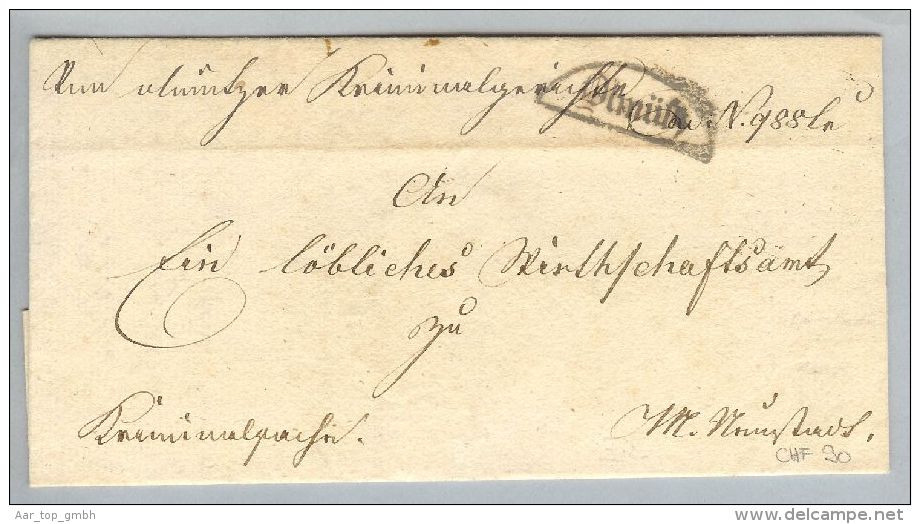 Vom olmützer Kriminalgerichte
Olmütz
N. 988
An
Ein löbliches Wirthschaftsamt
zu
Kriminalsache.
M. Neustadt.
CHF 90
Aar_top_gmbh
www.delcampe.net